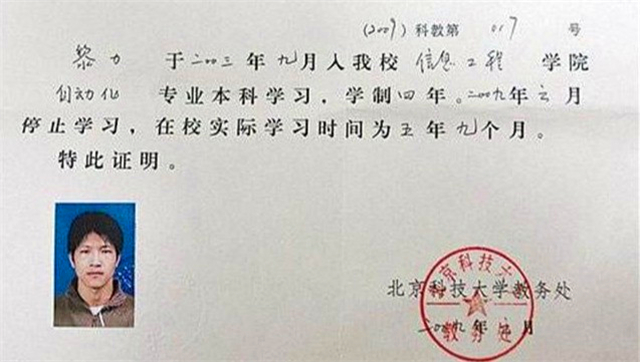 (2009) 科教第 017 号
黎力 于二〇〇三年九月入我校 信息工程 学院
自动化 专业本科学习，学制四年。二〇〇九年六月
停止学习，在校实际学习时间为五年九个月。
特此证明。
北京科技大学
北京科技大学教务处
教务处
二〇〇九年六月